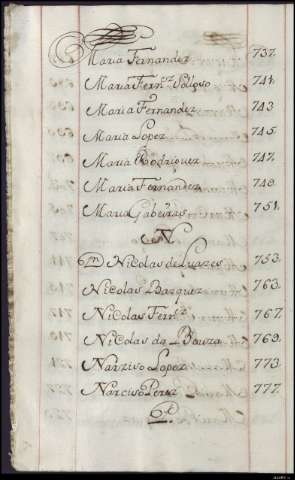 Maria Fernandez 737.
Maria Fern.z 741.
Maria Fernandez 743.
Maria Lopez 745.
Maria Rodriguez 747.
Maria Fernandez 749.
Maria 751.
N
Nicolas de 753.
Nicolas Bazquez 763.
Nicolas Fern.z 767.
Nicolas da Bouza 769.
Narziso Lopez 773.
Narciso Perez 777.